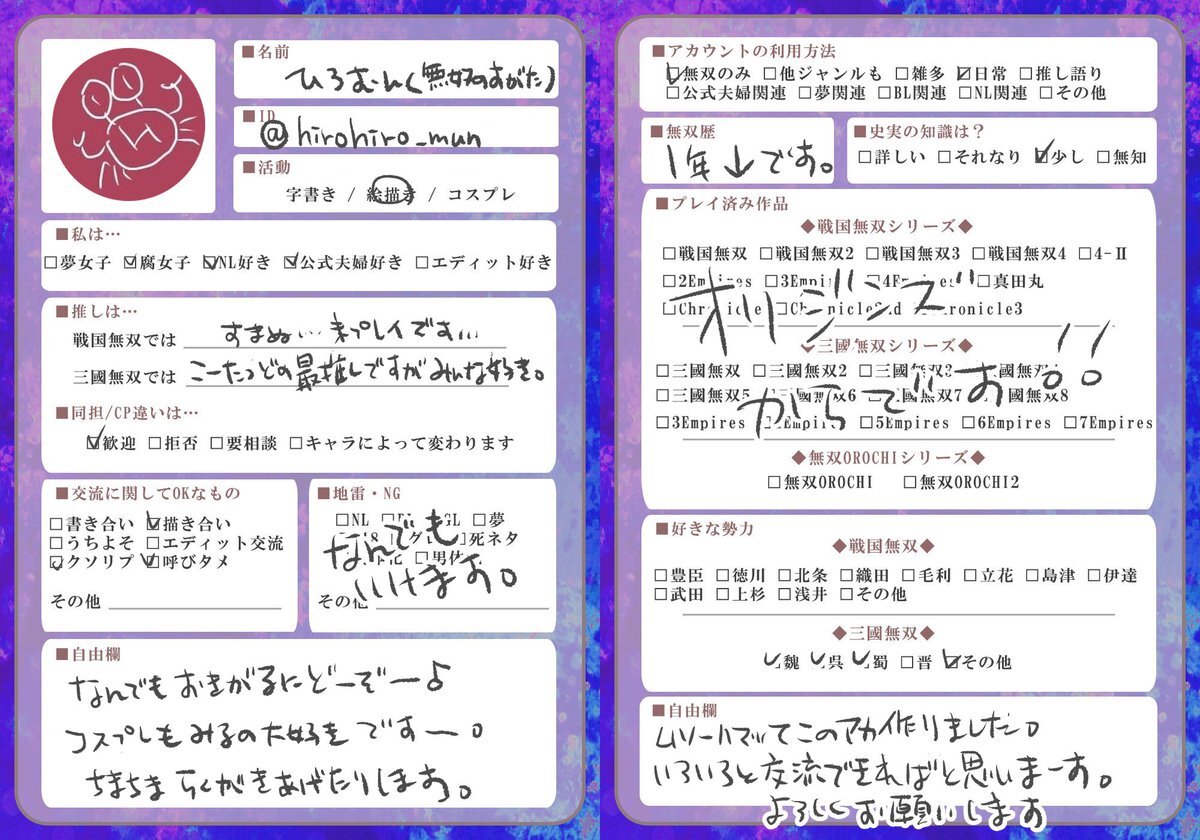 ■名前
ひろむーん(無好のすがた)
■ID
@hirohiro_mun
■活動
字書き / 絵描き / コスプレ
■私は…
□夢女子 ☑腐女子 ☑NL好き ☑公式夫婦好き □エディット好き
■推しは…
戦国無双では すまぬ…未プレイです…
三國無双では こーたつどの最推しですがみんな好き。
■同担/CP違いは…
☑歓迎 □拒否 □要相談 □キャラによって変わります
■交流に関してOKなもの
□書き合い ☑描き合い
□うちよそ □エディット交流
☑クソリプ ☑呼びタメ
その他
■地雷・NG
□NL GL □夢
□死ネタ
なんでも
いけます。
その他
■自由欄
なんでもおきがるにどーぞー♪
コスプレもみるの大好きですー。
ちまちまらくがきあげたりします。
■アカウントの利用方法
☑無双のみ □他ジャンルも □雑多 ☑日常 □推し語り
□公式夫婦関連 □夢関連 □BL関連 □NL関連 □その他
■無双歴
1年↓です。
■史実の知識は?
□詳しい □それなり ☑少し □無知
■プレイ済み作品
◆戦国無双シリーズ◆
□戦国無双 □戦国無双2 □戦国無双3 □戦国無双4 □4-Ⅱ
□2Empires □3Empires □4Empires □真田丸
□Chronicle □Chronicle2nd □Chronicle3
オリジンズ
◆三國無双シリーズ◆
□三國無双 □三國無双2 □三國無双3 □三國無双4
□三國無双5 □三國無双6 □三國無双7 □三國無双8
からでお!!
□3Empires □4Empires □5Empires □6Empires □7Empires
◆無双OROCHIシリーズ◆
□無双OROCHI □無双OROCHI2
■好きな勢力
◆戦国無双◆
□豊臣 □徳川 □北条 □織田 □毛利 □立花 □島津 □伊達
□武田 □上杉 □浅井 □その他
◆三國無双◆
☑魏 ☑呉 ☑蜀 □晋 ☑その他
■自由欄
ムソーハマッてこのアカ作りました。
いろいろと交流できればと思いまーす。
よろしくお願いします